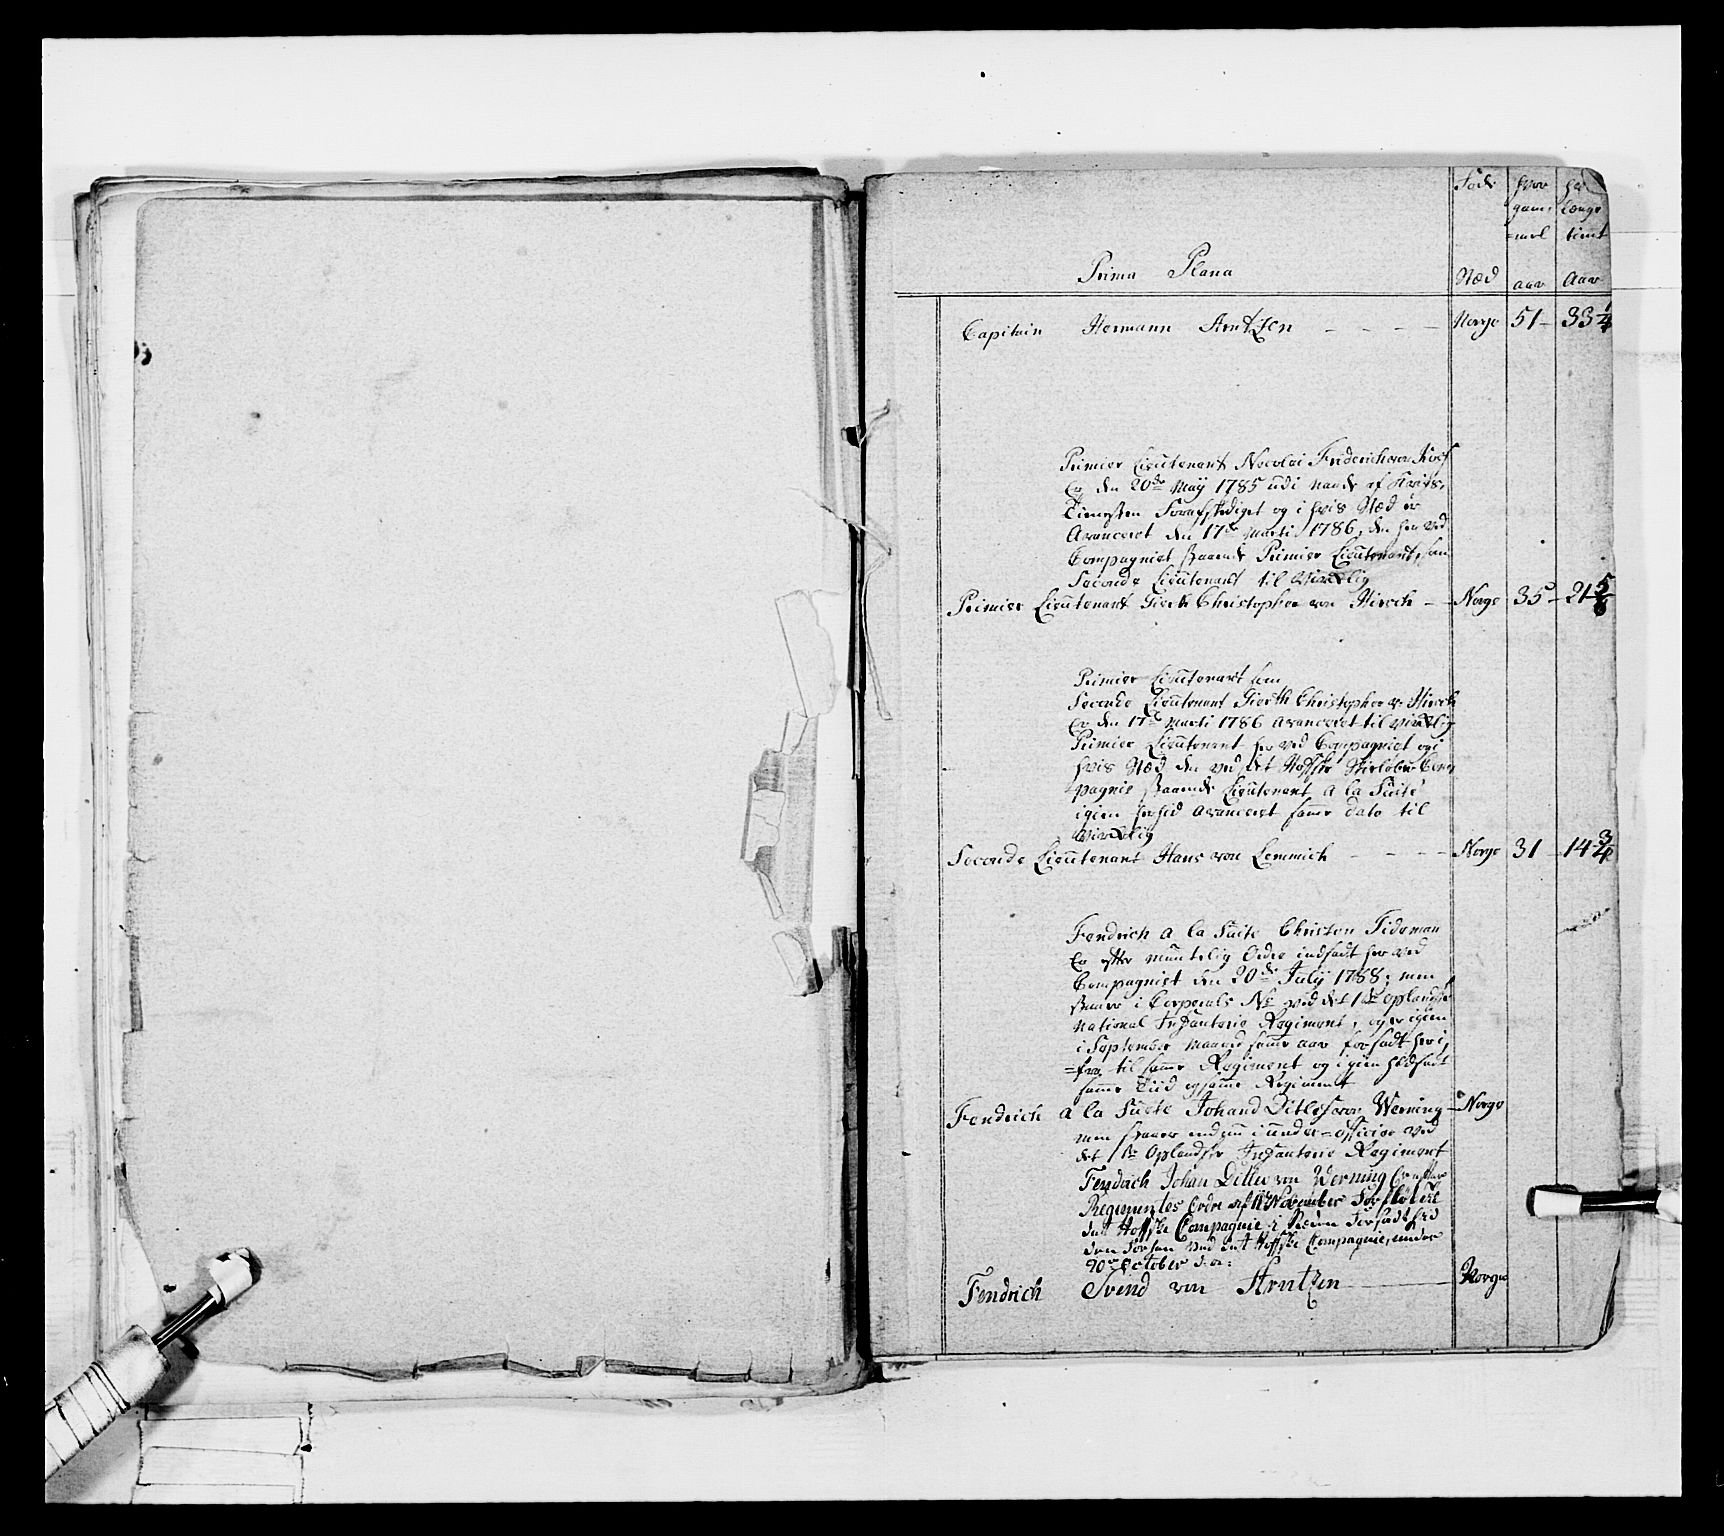 Føde hvor har
gam= længe
=mel tient
Prima Plana Stæd aar Aar
Capitain Hermann Arntzen - - - - Norge 51 - 33 1/4
Premier Lieutenant Nicolai Friderich von
Er den 20de Maij 1785 udi Naade af Krigs,
Tienesten Forafskediget og i hvis Stæd er
Avanceret den 17de Marti 1786, den her ved
Compagniet staaende Premier Lieutenant, som
Seconde Lieutenant til Virkelig
Premier Lieutenant Gierth Christopher von Hirsch - Norge 35 - 21 5/6
Premier Lieutenant som
Seconde Lieutenant Gierth Christopher v. Hirsch
Er den 17de Marti 1786 Avanceret til Virkelig
Premier Lieutenant her ved Compagniet og i
hvis Stæd den ved det Hoffske Skieløber Com=
pagnie staaende Lieutenant a la Suite
igien herhid Avanceret samme dato til
Virkelig
Seconde Lieutenant Hans von Lemmich - - - - Norge 31 - 14 3/4
Fendrich a la Suite Christen Tideman
Er efter mundtelig Ordre indsadt her ved
Compagniet den 20de Julij 1788; men
staaer i Corporals No ved det 1ste Oplandske
National Infanterie Regiment, og er igien
i September Maaned samme aar forsadt her i,
=fra til samme Regiment og igien hidsadt
samme Tiid af samme Regiment
Fendrich a la Suite Johand Ditlef von Werning - Norge
men staaer endnu i under=officier ved
det 1te Oplandske Infanterie Regiment
Fendrich Johan Ditlev von Werning Er efter
Regimentes Ordre af November Forfløttet til
det Hoffske Compagnie, i Steden Forsadt hid
den Forhen ved det Hoffske Compagnie, under
20de October d: a:
Fendrich Svend von Arntzen - Norge